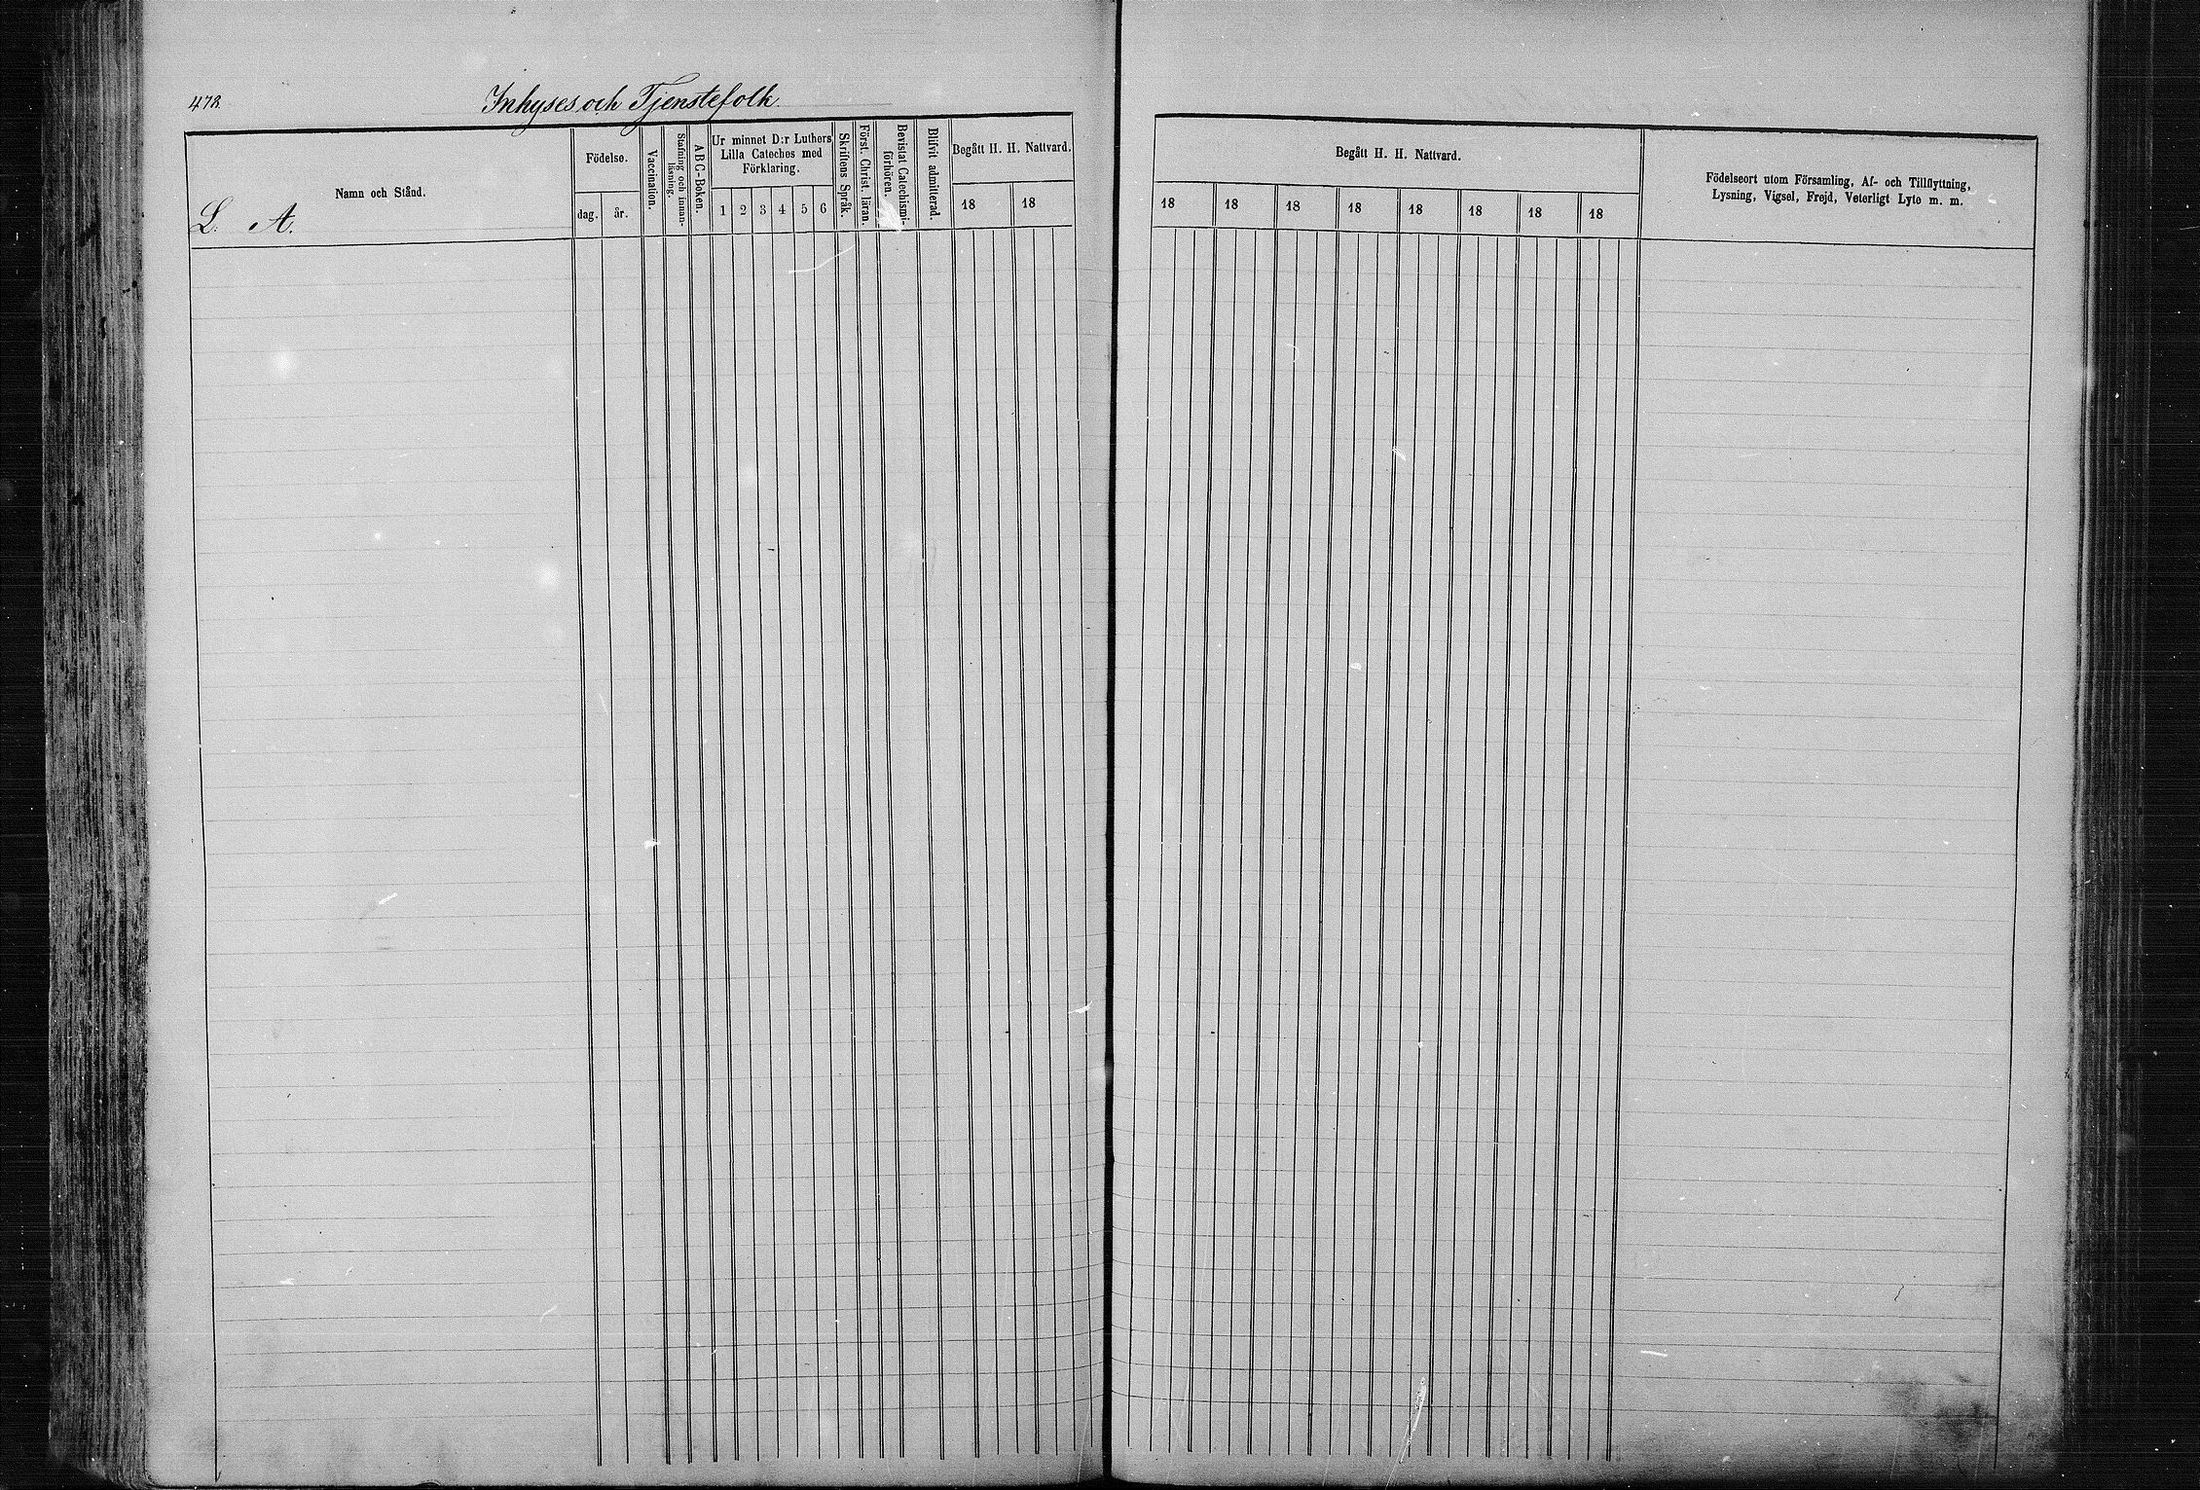 472.
Inhyses och Tjenstefolk.
Namn och Stånd.
L. A.
Födelse.
dag. år.
Vaccination.
Stafning och innan-
läsning.
ABC-Boken.
Ur minnet D:r Luthers
Lilla Cateches med
Förklaring.
1 2 3 4 5 6
Skriftens Språk.
Först. Christ. läran.
Bevistat Catechismi-
förhören.
Blifvit admitterad.
Begått H. H. Nattvard.
18 18
Begått H. H. Nattvard.
18 18 18 18 18 18 18 18
Födelseort utom Församling, Af- och Tillflyttning,
Lysning, Vigsel, Frejd, Veterligt Lyte m. m.